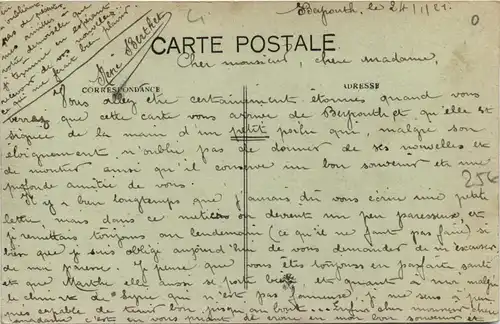 Beyrouth, le 24/1/21.
CARTE POSTALE
Cher monsieur, chère madame,
CORRESPONDANCE
ADRESSE
René Berthet
Vous allez être certainement étonnés quand vous
verrez que cette carte vous arrive de Beyrouth et qu'elle est
signée de la main d'un petit poilu qui, malgré son
éloignement n'oublie pas de donner de ses nouvelles et
de montrer ainsi qu'il conserve un bon souvenir et une
profonde amitié de vous.
Il y a bien longtemps que j'aurais dû vous écrire une petite
lettre mais dans ce métier on devient un peu paresseux et
je remettais toujours au lendemain (ce qu'il ne faut pas faire) si
bien que je suis obligé aujourd'hui de vous demander de m'excuser
de ma paresse. Je pense que vous êtes toujours en parfaite santé
et que Marthe elle aussi se porte bien et quant à moi malgré
le climat de Syrie qui n'est pas fameuse, je me sens
capable de tenir bon jusqu'au bout. Enfin cher monsieur, chère
madame c'est en vous priant de croire en mon bon souvenir et
25€
0